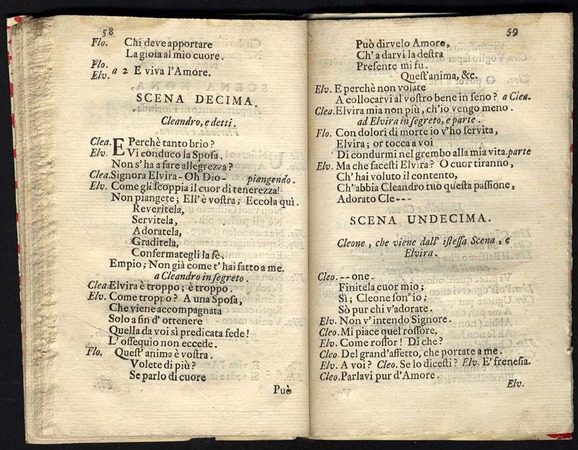 58
Flo. Chi deve apportare
La gioia al mio cuore.
Flo.
Elv. a 2 E viva l'Amore.
SCENA DECIMA.
Cleandro, e detti.
Clea. E Perchè tanto brio?
Elv. Vi conduco la Sposa.
Non s'ha a fare allegrezza?
Clea. Signora Elvira - Oh Dio - piangendo.
Elv. Come gli scoppia il cuor di tenerezza!
Non piangete; Ell'è vostra; Eccola quì.
Reveritela,
Servitela,
Adoratela,
Graditela,
Confermategli la fè.
Empio; Non già come t'hai fatto a me.
a Cleandro in segreto.
Clea Elvira è troppo; è troppo.
Elv. Come troppo? A una Sposa,
Che viene accompagnata
Solo a fin d'ottenere
Quella da voi sì predicata fede!
L'ossequio non eccede.
Flo. Quest'anima è vostra.
Volete di più?
Se parlo di cuore
Può
59
Può dirvelo Amore,
Ch'a darvi la destra
Presente mi fu.
Quest'anima, &c.
Elv. E perchè non volate
A collocarvi al vostro bene in seno? a Clea.
Clea. Elvira mia non più, ch'io vengo meno.
ad Elvira in segreto, e parte.
Flo. Con dolori di morte io v'ho servita,
Elvira; or tocca a voi
Di condurmi nel grembo alla mia vita. parte
Elv. Ma che facesti Elvira? O cuor tiranno,
Ch'hai voluto il contento,
Ch'abbia Cleandro tuo questa passione,
Adorato Cle---
SCENA UNDECIMA.
Cleone, che viene dall' istessa Scena, e
Elvira.
Cleo. --one.
Finitela cuor mio;
Sì; Cleone son'io;
Sò pur chi v'adorate.
Elv. Non v'intendo Signore.
Cleo. Mi piace quel rossore,
Elv. Come rossor! Di che?
Cleo. Del grand'affetto, che portate a me.
Elv. A voi? Cleo. Se lo dicesti? Elv. E' frenesia.
Cleo. Parlavi pur d'Amore.
Elv.